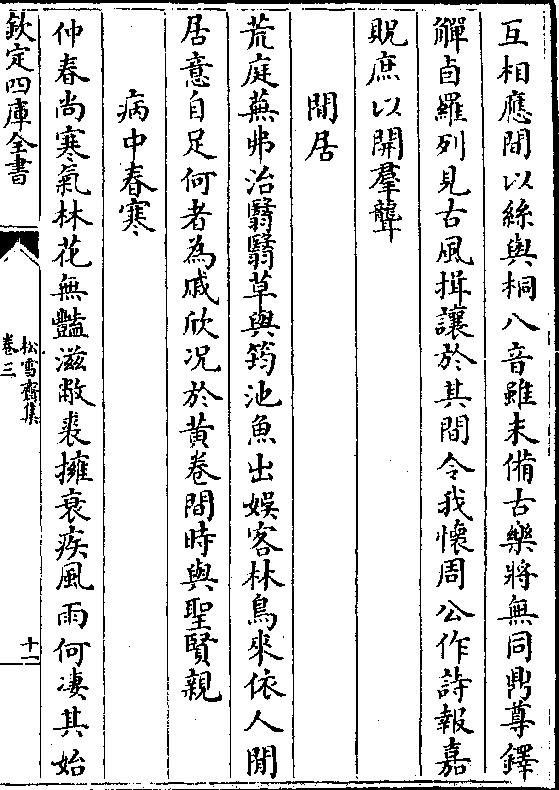 互相應間以絲與桐八音雖未備古樂將無同鼎尊鐸
觶卣羅列見古風揖讓於其間令我懷周公作詩報嘉
貺庶以開羣聾
閒居
荒庭蕪弗治翳翳草與筠池魚出娛客林鳥來依人閒
居意自足何者為戚欣况於黃卷間時與聖賢親
病中春寒
仲春尚寒氣林花無豔滋敝裘擁衰疾風雨何凄其始
欽定四庫全書
松雪齋集
卷三
十一